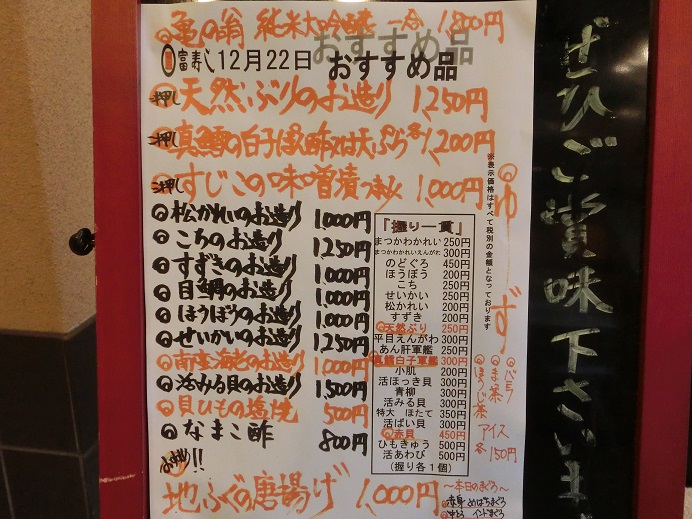 亀の翁 純米大吟醸 一合 1,800円
富寿し 12月22日 おすすめ品
一押し 天然ぶりのお造り 1,250円
二押し 真鱈の白子 ぽん酢又は天ぷら 各1,200円
三押し すじこの味噌漬 1,000円
松かれいのお造り 1,000円
こちのお造り 1,250円
すずきのお造り 1,000円
目鯛のお造り 1,000円
ほうぼうのお造り 1,000円
せいかいのお造り 1,250円
南蛮海老のお造り 1,000円
活みる貝のお造り 1,250円
貝ひもの塩焼 500円
なまこ酢 800円
地ふぐの唐揚げ 1,000円
「握り一貫」
まつかわかれい 250円
まつかわかれいえんがわ 300円
のどぐろ 450円
ほうぼう 200円
こち 250円
せいかい 250円
松かれい 200円
すずき 200円
天然ぶり 250円
平目えんがわ 300円
あん肝軍艦 300円
真鱈白子軍艦 300円
小肌 200円
活ほっき貝 300円
青柳 300円
活みる貝 300円
特大 ほたて 350円
活ばい貝 300円
赤貝 450円
ひもきゅう 500円
活あわび 500円
(握り各1個)
※表示価格はすべて税別の金額となっております
ゆず
バニラ
まっ茶
ほうじ茶
アイス
各150円
〜本日のまぐろ〜
赤身 めばちまぐろ
中とろ インドまぐろ
ぜひご賞味下さいま